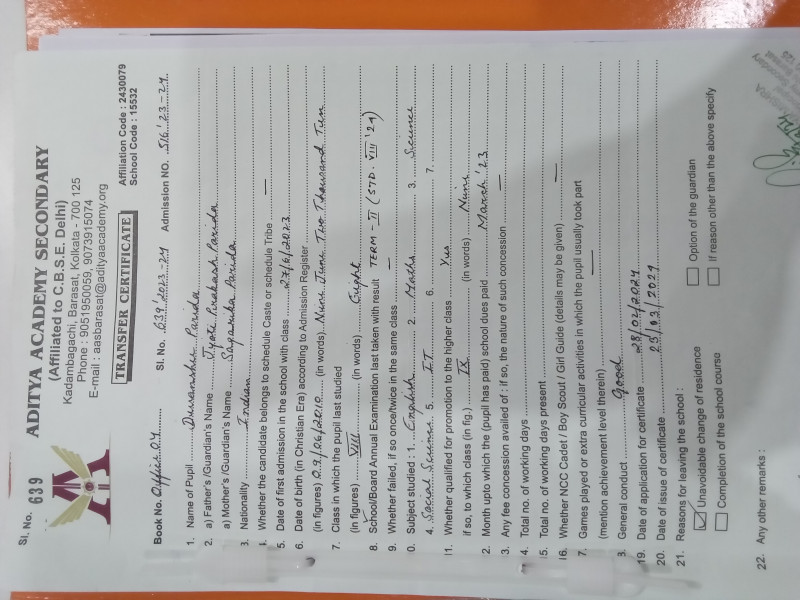 Sl. No. 639
ADITYA ACADEMY SECONDARY
(Affiliated to C.B.S.E. Delhi)
Kadambagachi, Barasat, Kolkata - 700 125
Phone : 9051950059, 9073915074
E-mail : aasbarasat@adityaacademy.org
TRANSFER CERTIFICATE
Affiliation Code : 2430079
School Code : 15532
Book No. Office Sl. No. 639/2023-24 Admission NO. 516/23-24
1. Name of Pupil Parida
2. a) Father's /Guardian's Name Jyoti Prakash Parida
a) Mother's /Guardian's Name Sagarika Parida
3. Nationality Indian
4. Whether the candidate belongs to schedule Caste or schedule Tribe —
5. Date of first admission in the school with class 27/6/2023
6. Date of birth (in Christian Era) according to Admission Register
(in figures) 09/06/2010 (in words) Nine June Two Thousand Ten
7. Class in which the pupil last studied
(in figures) VIII (in words) Eight
8. School/Board Annual Examination last taken with result TERM - II (STD. VIII '24)
9. Whether failed, if so once/twice in the same class —
0. Subject studied : 1. English 2. Maths 3. Science
4. Social Science 5. IT 6. 7.
11. Whether qualified for promotion to the higher class Yes
if so, to which class (in fig.) IX (in words) Nine
2. Month upto which the (pupil has paid) school dues paid March '23
3. Any fee concession availed of : if so, the nature of such concession —
4. Total no. of working days
15. Total no. of working days present
16. Whether NCC Cadet / Boy Scout / Girl Guide (details may be given) —
7. Games played or extra curricular activities in which the pupil usually took part
(mention achievement level therein) —
8. General conduct Good
19. Date of application for certificate 28/02/2024
20. Date of issue of certificate 25/03/2024
21. Reasons for leaving the school :
Unavoidable change of residence Option of the guardian
Completion of the school course If reason other than the above specify
22. Any other remarks :